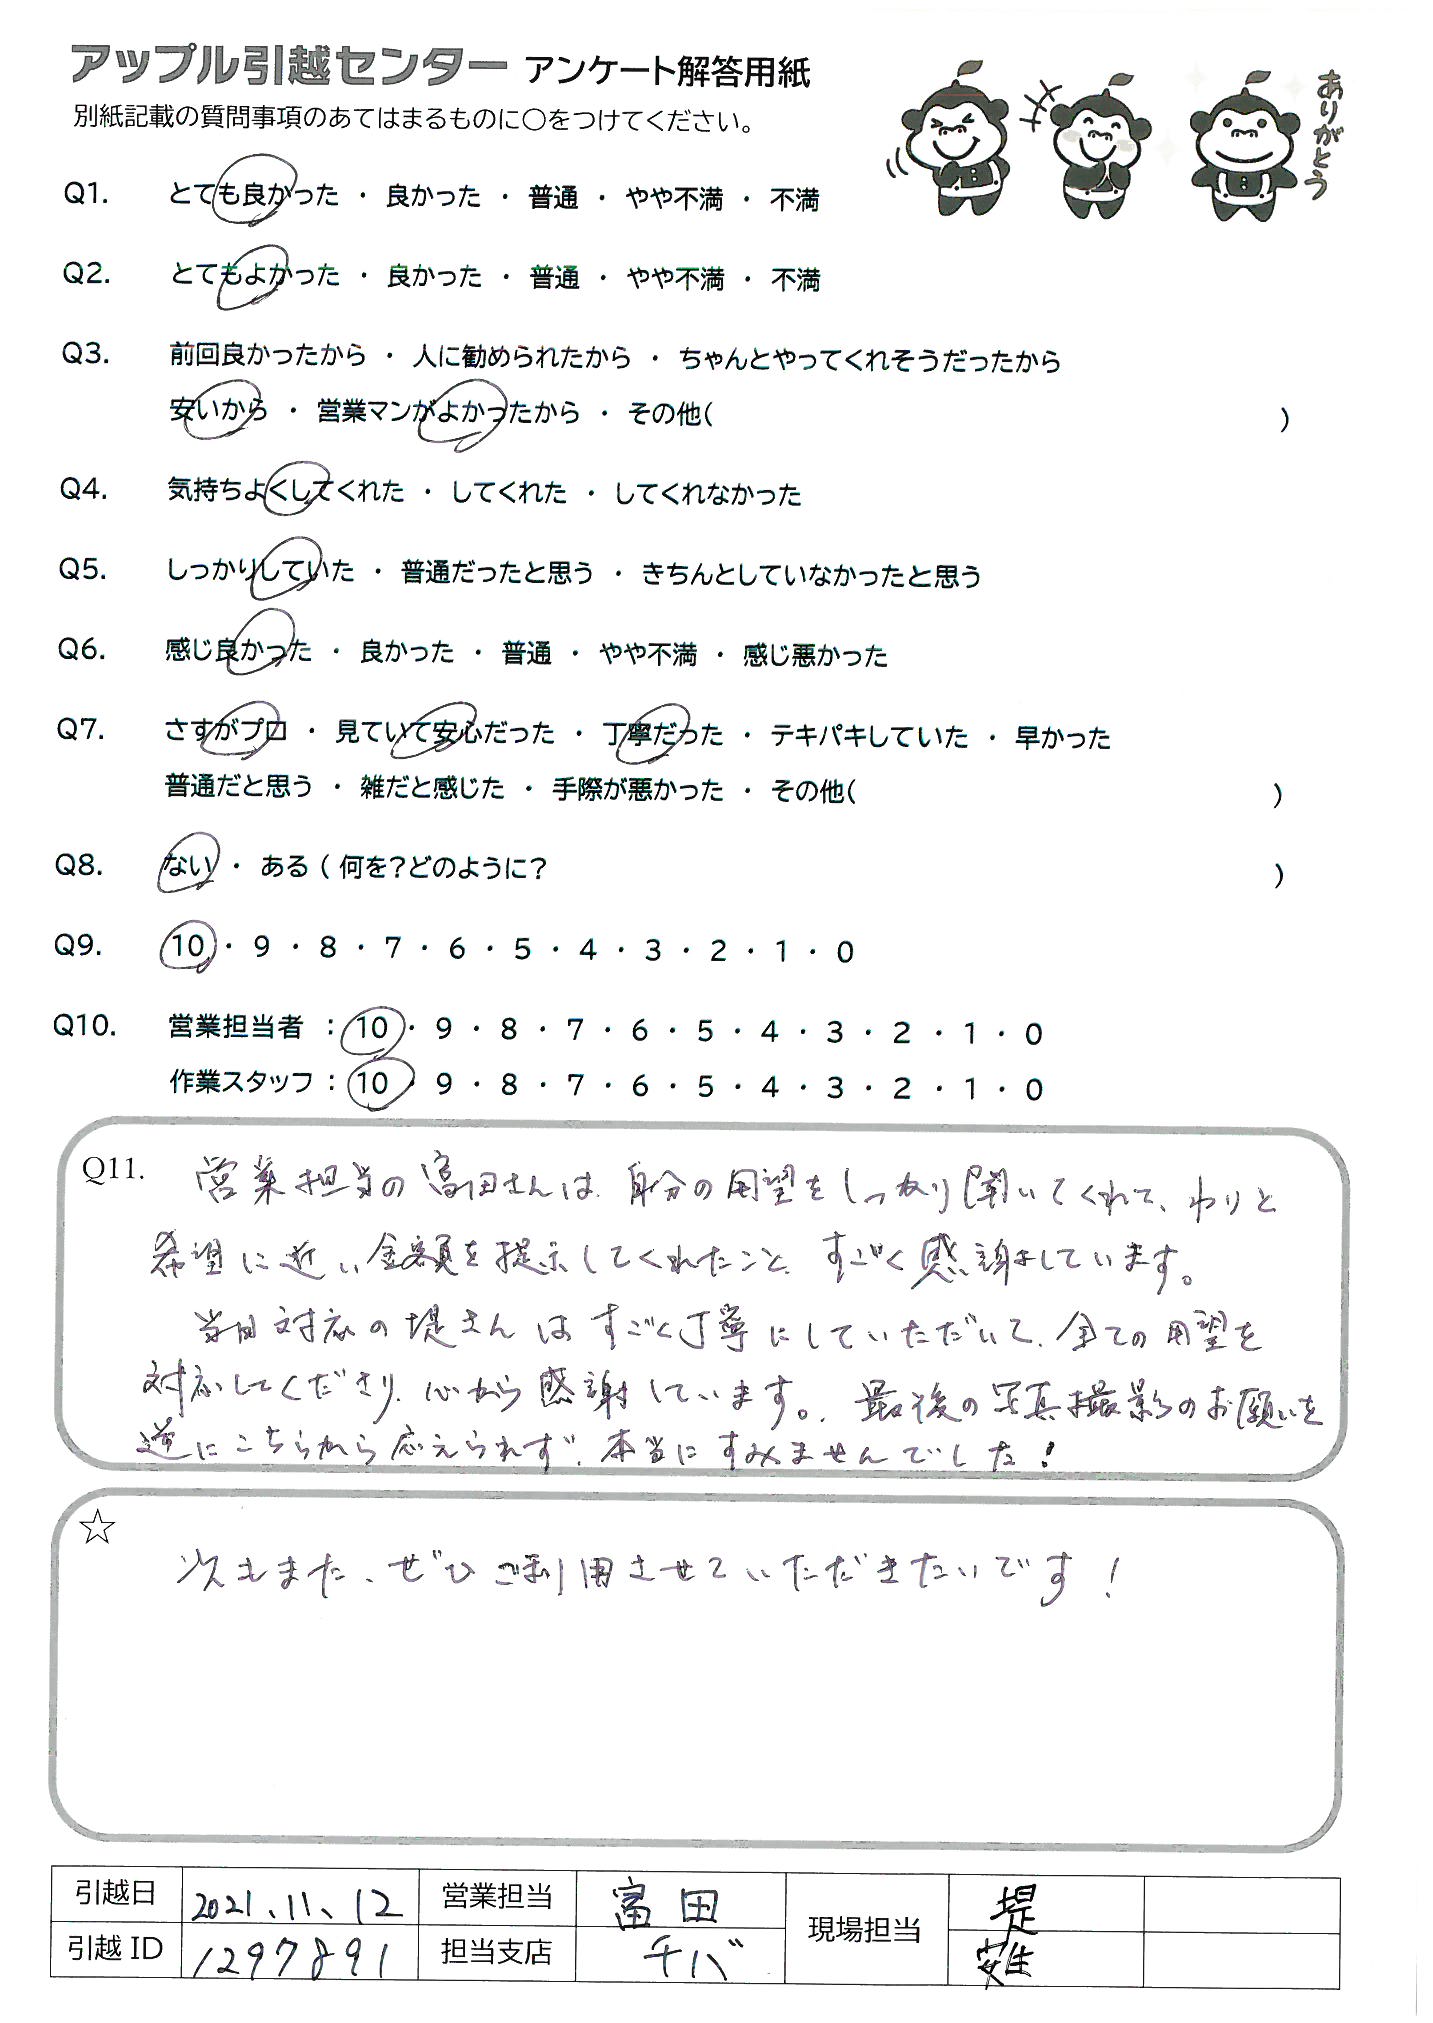 アップル引越センター アンケート解答用紙
別紙記載の質問事項のあてはまるものに○をつけてください。
ありがとう
Q1. とても良かった ・ 良かった ・ 普通 ・ やや不満 ・ 不満
Q2. とてもよかった ・ 良かった ・ 普通 ・ やや不満 ・ 不満
Q3. 前回良かったから ・ 人に勧められたから ・ ちゃんとやってくれそうだったから
安いから ・ 営業マンがよかったから ・ その他( )
Q4. 気持ちよくしてくれた ・ してくれた ・ してくれなかった
Q5. しっかりしていた ・ 普通だったと思う ・ きちんとしていなかったと思う
Q6. 感じ良かった ・ 良かった ・ 普通 ・ やや不満 ・ 感じ悪かった
Q7. さすがプロ ・ 見ていて安心だった ・ 丁寧だった ・ テキパキしていた ・ 早かった
普通だと思う ・ 雑だと感じた ・ 手際が悪かった ・ その他( )
Q8. ない ・ ある ( 何を?どのように? )
Q9. 10 ・ 9 ・ 8 ・ 7 ・ 6 ・ 5 ・ 4 ・ 3 ・ 2 ・ 1 ・ 0
Q10. 営業担当者 : 10 ・ 9 ・ 8 ・ 7 ・ 6 ・ 5 ・ 4 ・ 3 ・ 2 ・ 1 ・ 0
作業スタッフ : 10 ・ 9 ・ 8 ・ 7 ・ 6 ・ 5 ・ 4 ・ 3 ・ 2 ・ 1 ・ 0
Q11. 営業担当の富田さんは、自分の用望をしっかり聞いてくれて、わりと
希望に近い金額を提示してくれたこと、すごく感謝しています。
当日対応の堤さんはすごく丁寧にしていただいて、全ての用望を
対応してくださり、心から感謝しています。最後の写真撮影のお願いを
逆にこちらから応えられず、本当にすみませんでした!
☆
次もまた、ぜひご利用させていただきたいです!
引越日 2021、11、12 営業担当 富田 現場担当 堤
引越 ID 1297891 担当支店 チバ